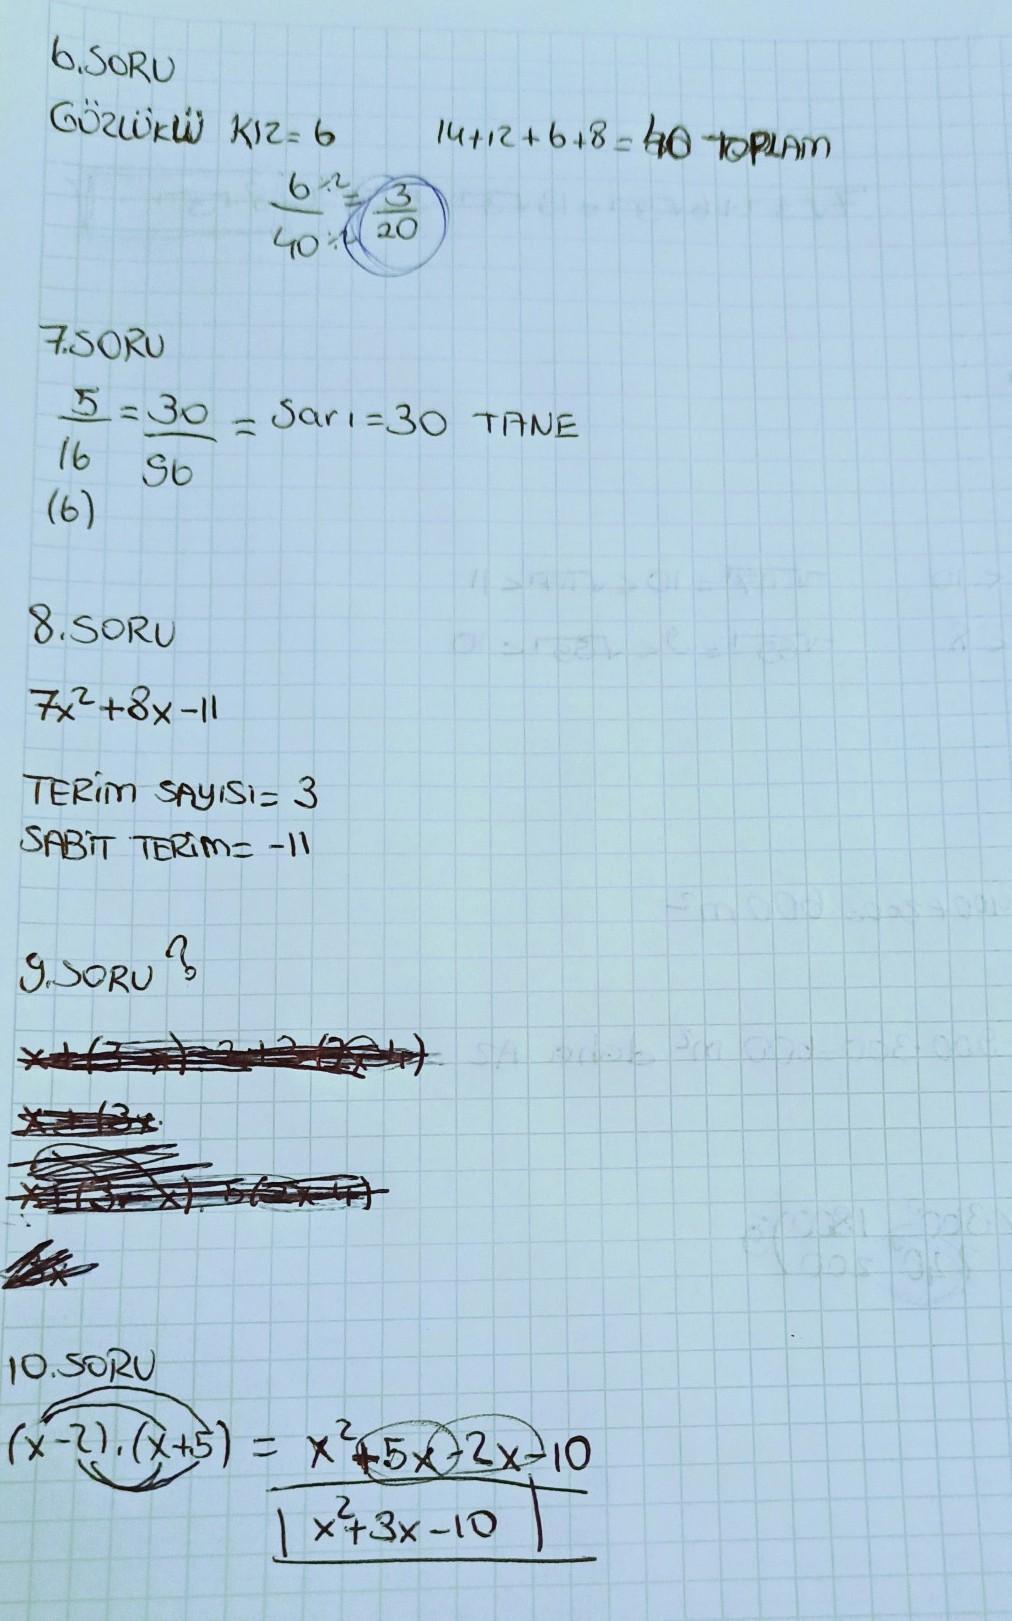 6.SORU
GÖZLÜKLÜ KIZ=6 14+12+6+8=40 TOPLAM
6÷2/40÷2 = 3/20
7.SORU
5/16 = 30/96 = Sarı=30 TANE
(6)
8.SORU
7x²+8x-11
TERİM SAYISI=3
SABİT TERİM=-11
9.SORU ?
10.SORU
(x-2).(x+5) = x²+5x-2x-10
x²+3x-10